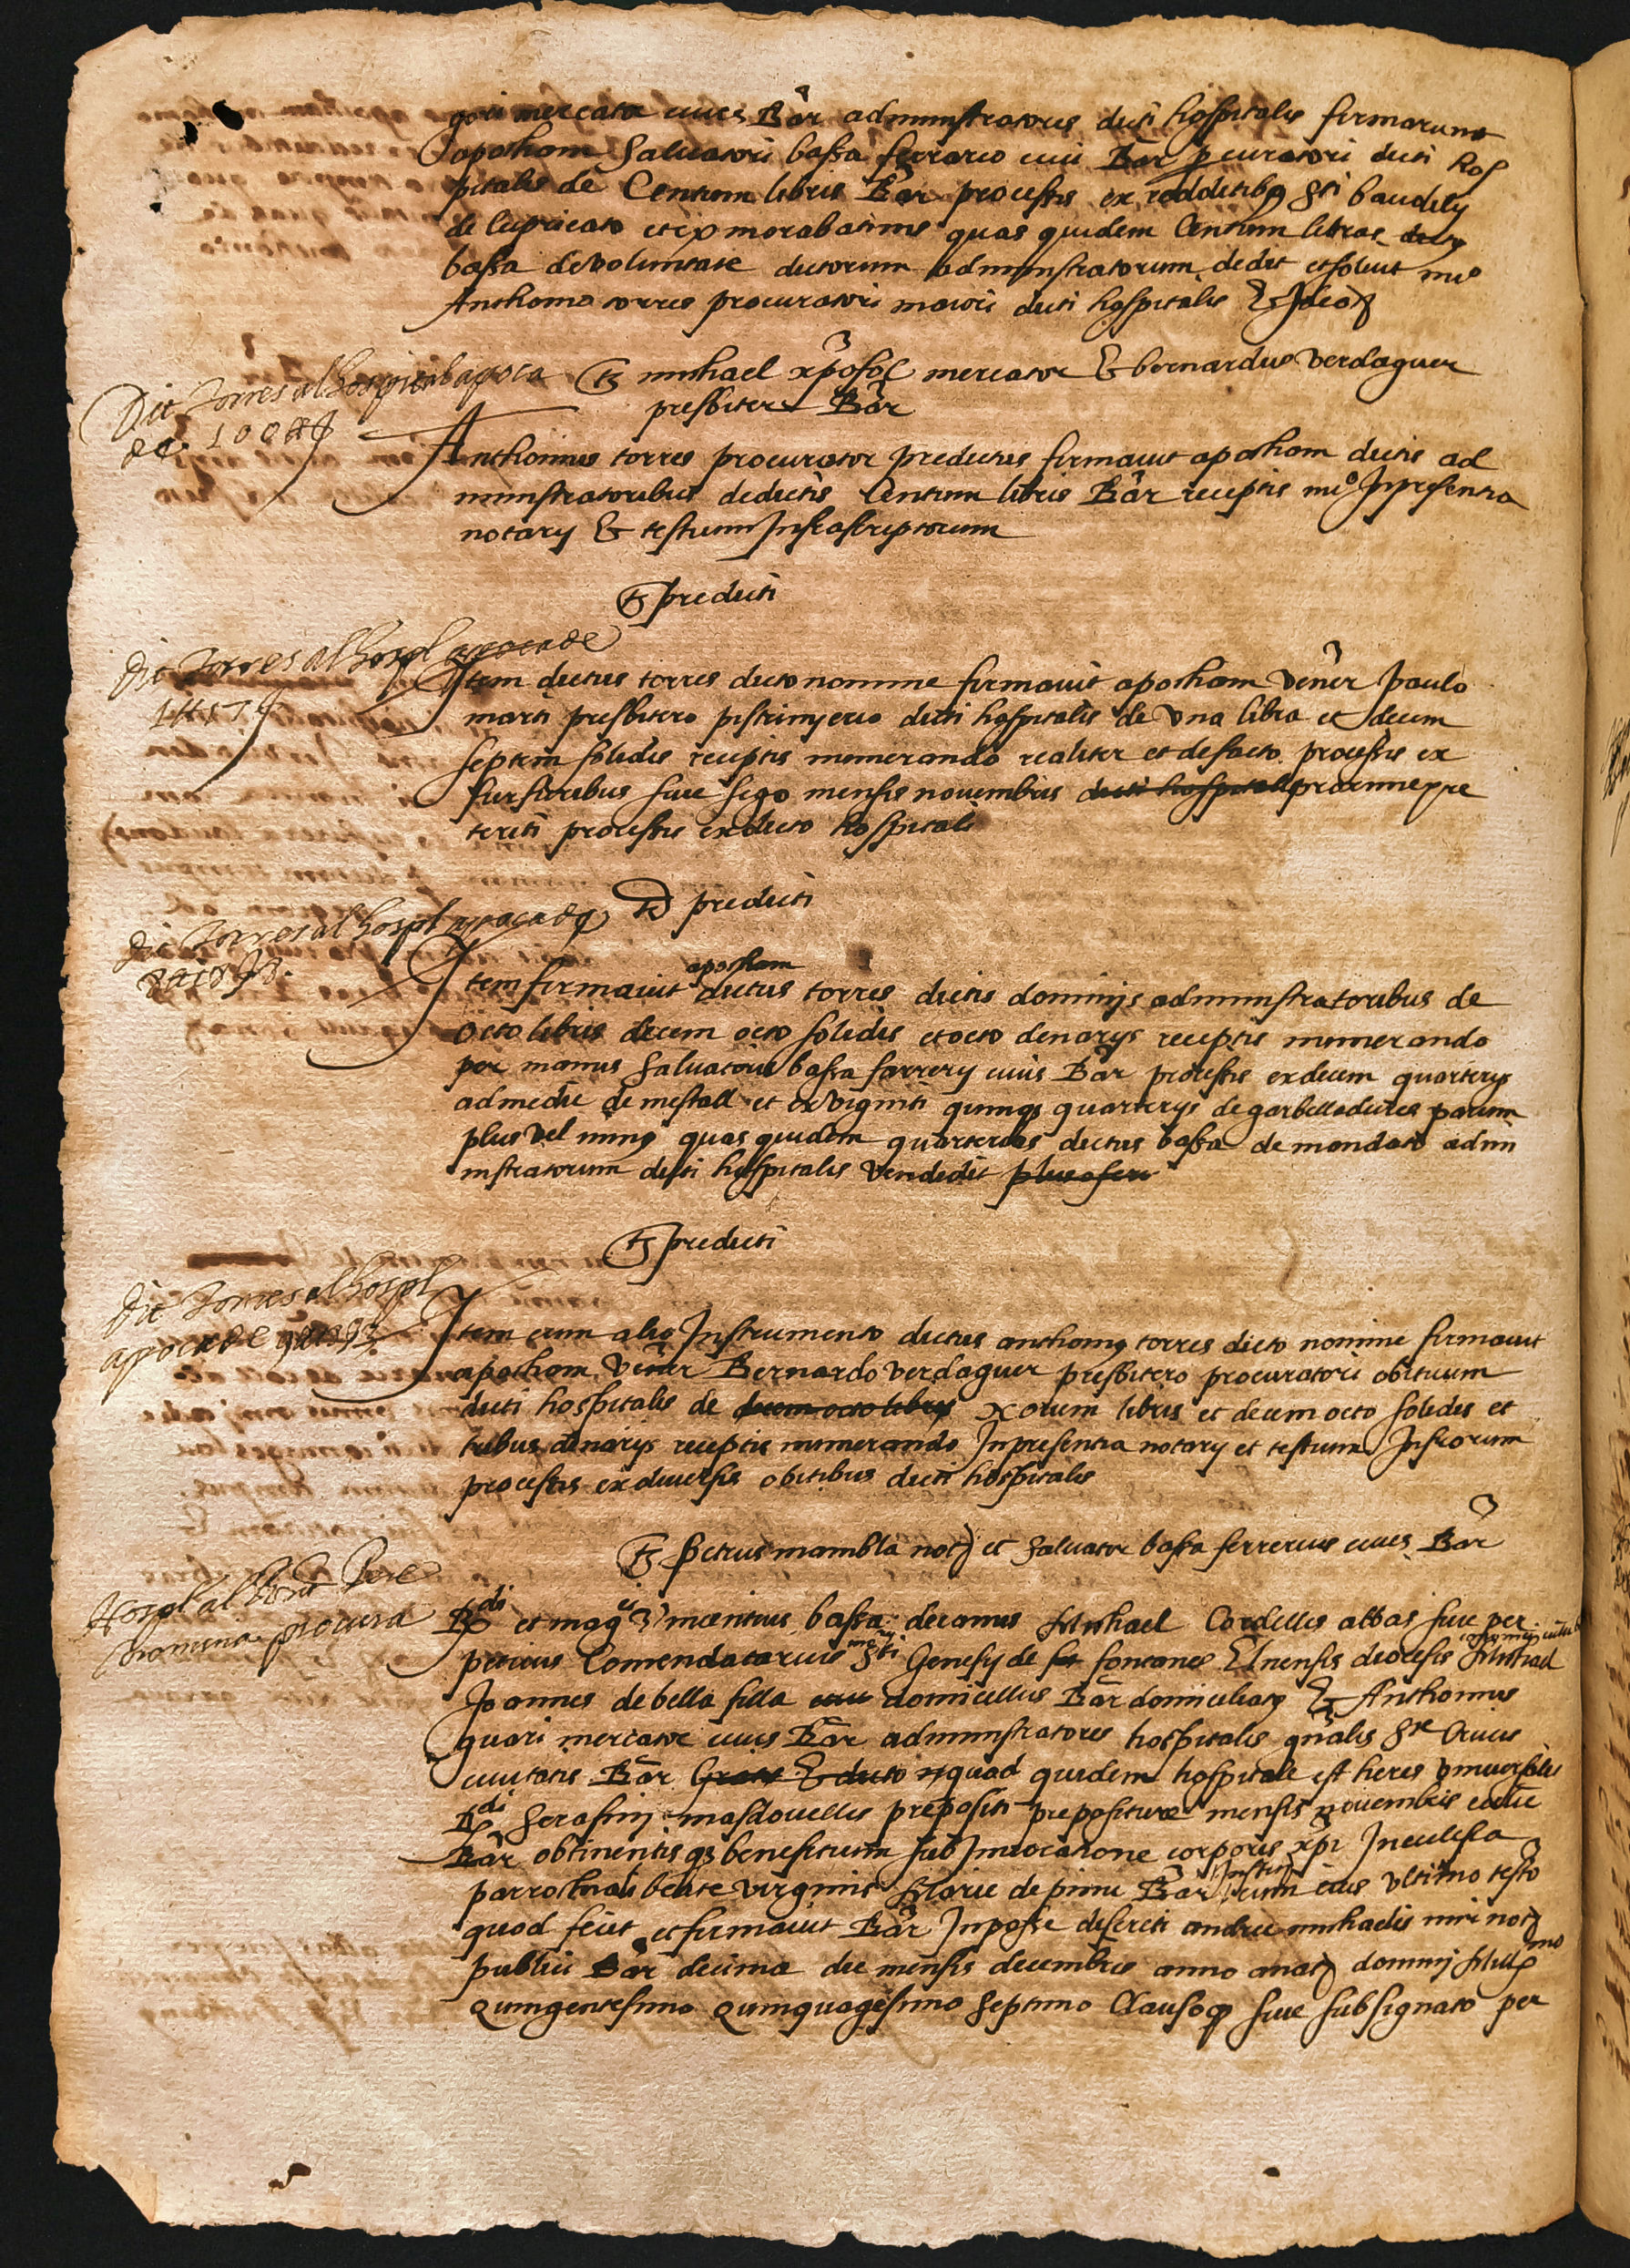 mercator cives Bar administratores dicti hospitalis firmarunt
apocham Salvatori bassa ferrario civi Bar procuratori dicti hos
pitalis de Centum libris Bar processis ex redditibus sti baudilij
de lupricato et ex morabatins quas quidem Centum libras dictus
bassa de voluntate dictorum administratorum dedit et solvit mo
Anthonio torres procuratori maiori dicti hospitalis & Ideo
Ts michael xpofol mercator & bernardus verdaguer
presbiter Bar
Dit Torres al hospital apoca
de 100 ll
Anthonius torres procurator predictus firmavit apocham dictis ad
ministratoribus de dictis Centum libris Bar receptis mo In presentia
notarij & testium Infrascriptorum
Ts predicti
Dit Torres al hospl apoca de
1 ll 17 s
Item dictus torres dicto nomine firmavit apocham vener paulo
marti presbitero pistrinyerio dicti hospitalis de una libra et decem
septem solidis receptis numerando realiter et de facto processis ex
furfuribus sive sego mensis novembris dicti hospitalis proxime pre
teriti processis ex dicto hospitali
Ts predicti
Dit Torres al hospl apoca de
8 ll 18 s 8
Item firmavit apocham dictus torres dictis dominijs administratoribus de
octo libris decem octo solidis et octo denarijs receptis numerando
per manus Salvatoris bassa farrerij civis Bar processis ex decem quarterijs
ad medie de mestall et ex viginti quinque quarterijs de garbelladures parum
plus vel minus quas quidem quarterias dictus bassa de mandato admi
nistratorum dicti hospitalis vendidit
Ts predicti
Dit Torres al hospl
apoca de 9 ll 18 s 3
Item cum alio Instrumento dictus anthonius torres dicto nomine firmavit
apocham vener Bernardo verdaguer presbitero procuratori obituum
dicti hospitalis de decem octo libris novem libris et decem octo solidis et
tribus denarijs receptis numerando In presentia notarij et testium Infrorum
processis ex diversis obitibus dicti hospitalis
Ts petrus mambla not et Salvator bassa ferrerius cives Bar
Hospl al Pere
procura
Rdi et magci vincentius bassa decanus Michael Cordelles abbas sive per
petuus Comendatarius mory sti Genesij de fontanes Elnensis diocesis
Joannes de bella filla domicellus Bar domiciliatus & Anthonius
quari mercator civis Bar administratores hospitalis gnalis Ste Crucis
civitatis Bar Gratis & dicto quod quidem hospitale est heres universalis
Rdi Serafini masdovelles prepositi prepositure mensis novembris ecclie
Bar obtinentis qs beneficium sub Invocatione corporis xpi In ecclesia
parrochiali beate virginis Marie de pinu Bar cum eius ultimo testo
quod fecit et firmavit Bar In posse discreti andree michaelis not
publici Bar decima die mensis decembris anno a nat domini Millmo
quingentesimo quinquagesimo septimo Clausoq sive subsignato per